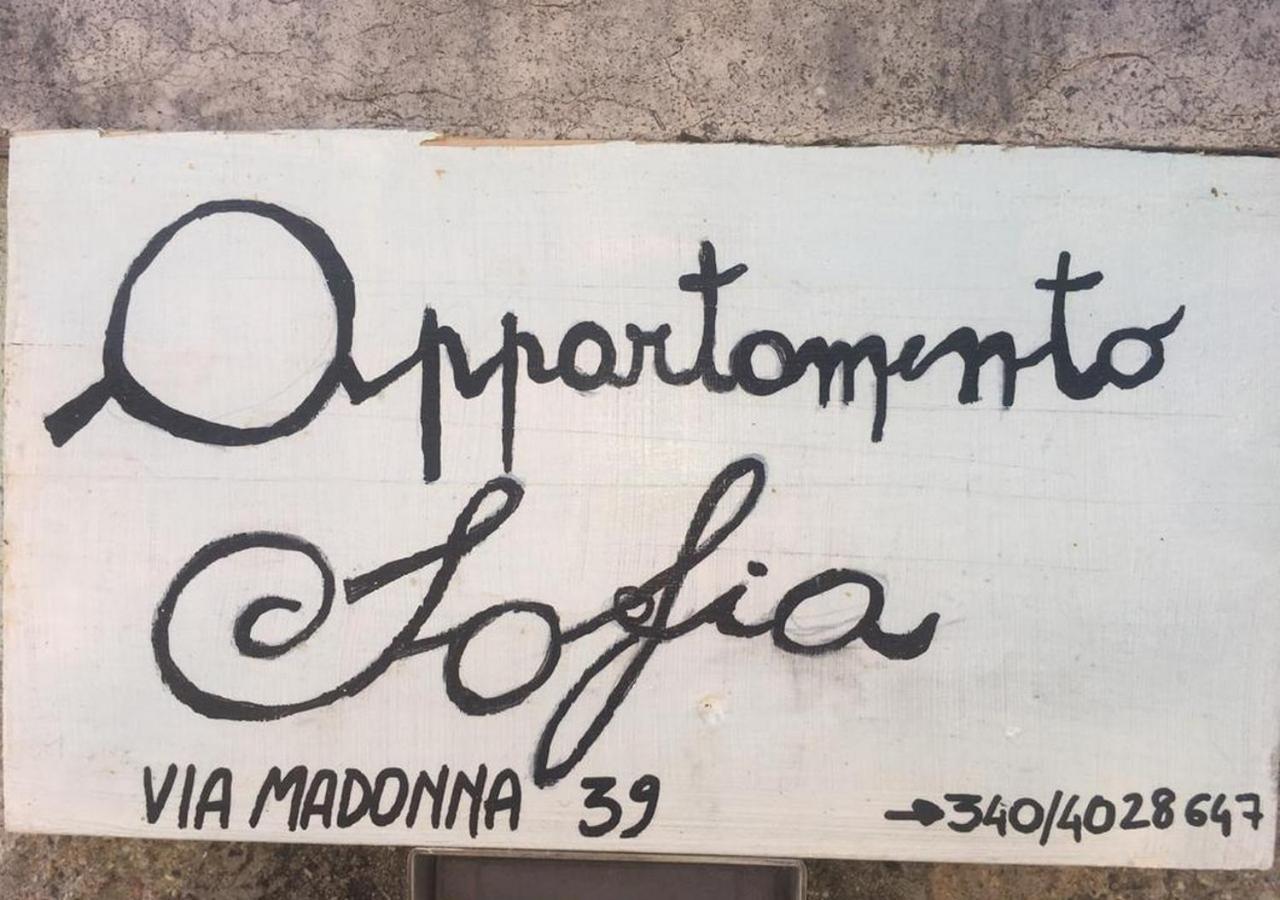 Appartamento
Sofia
VIA MADONNA 39
→340/4028647